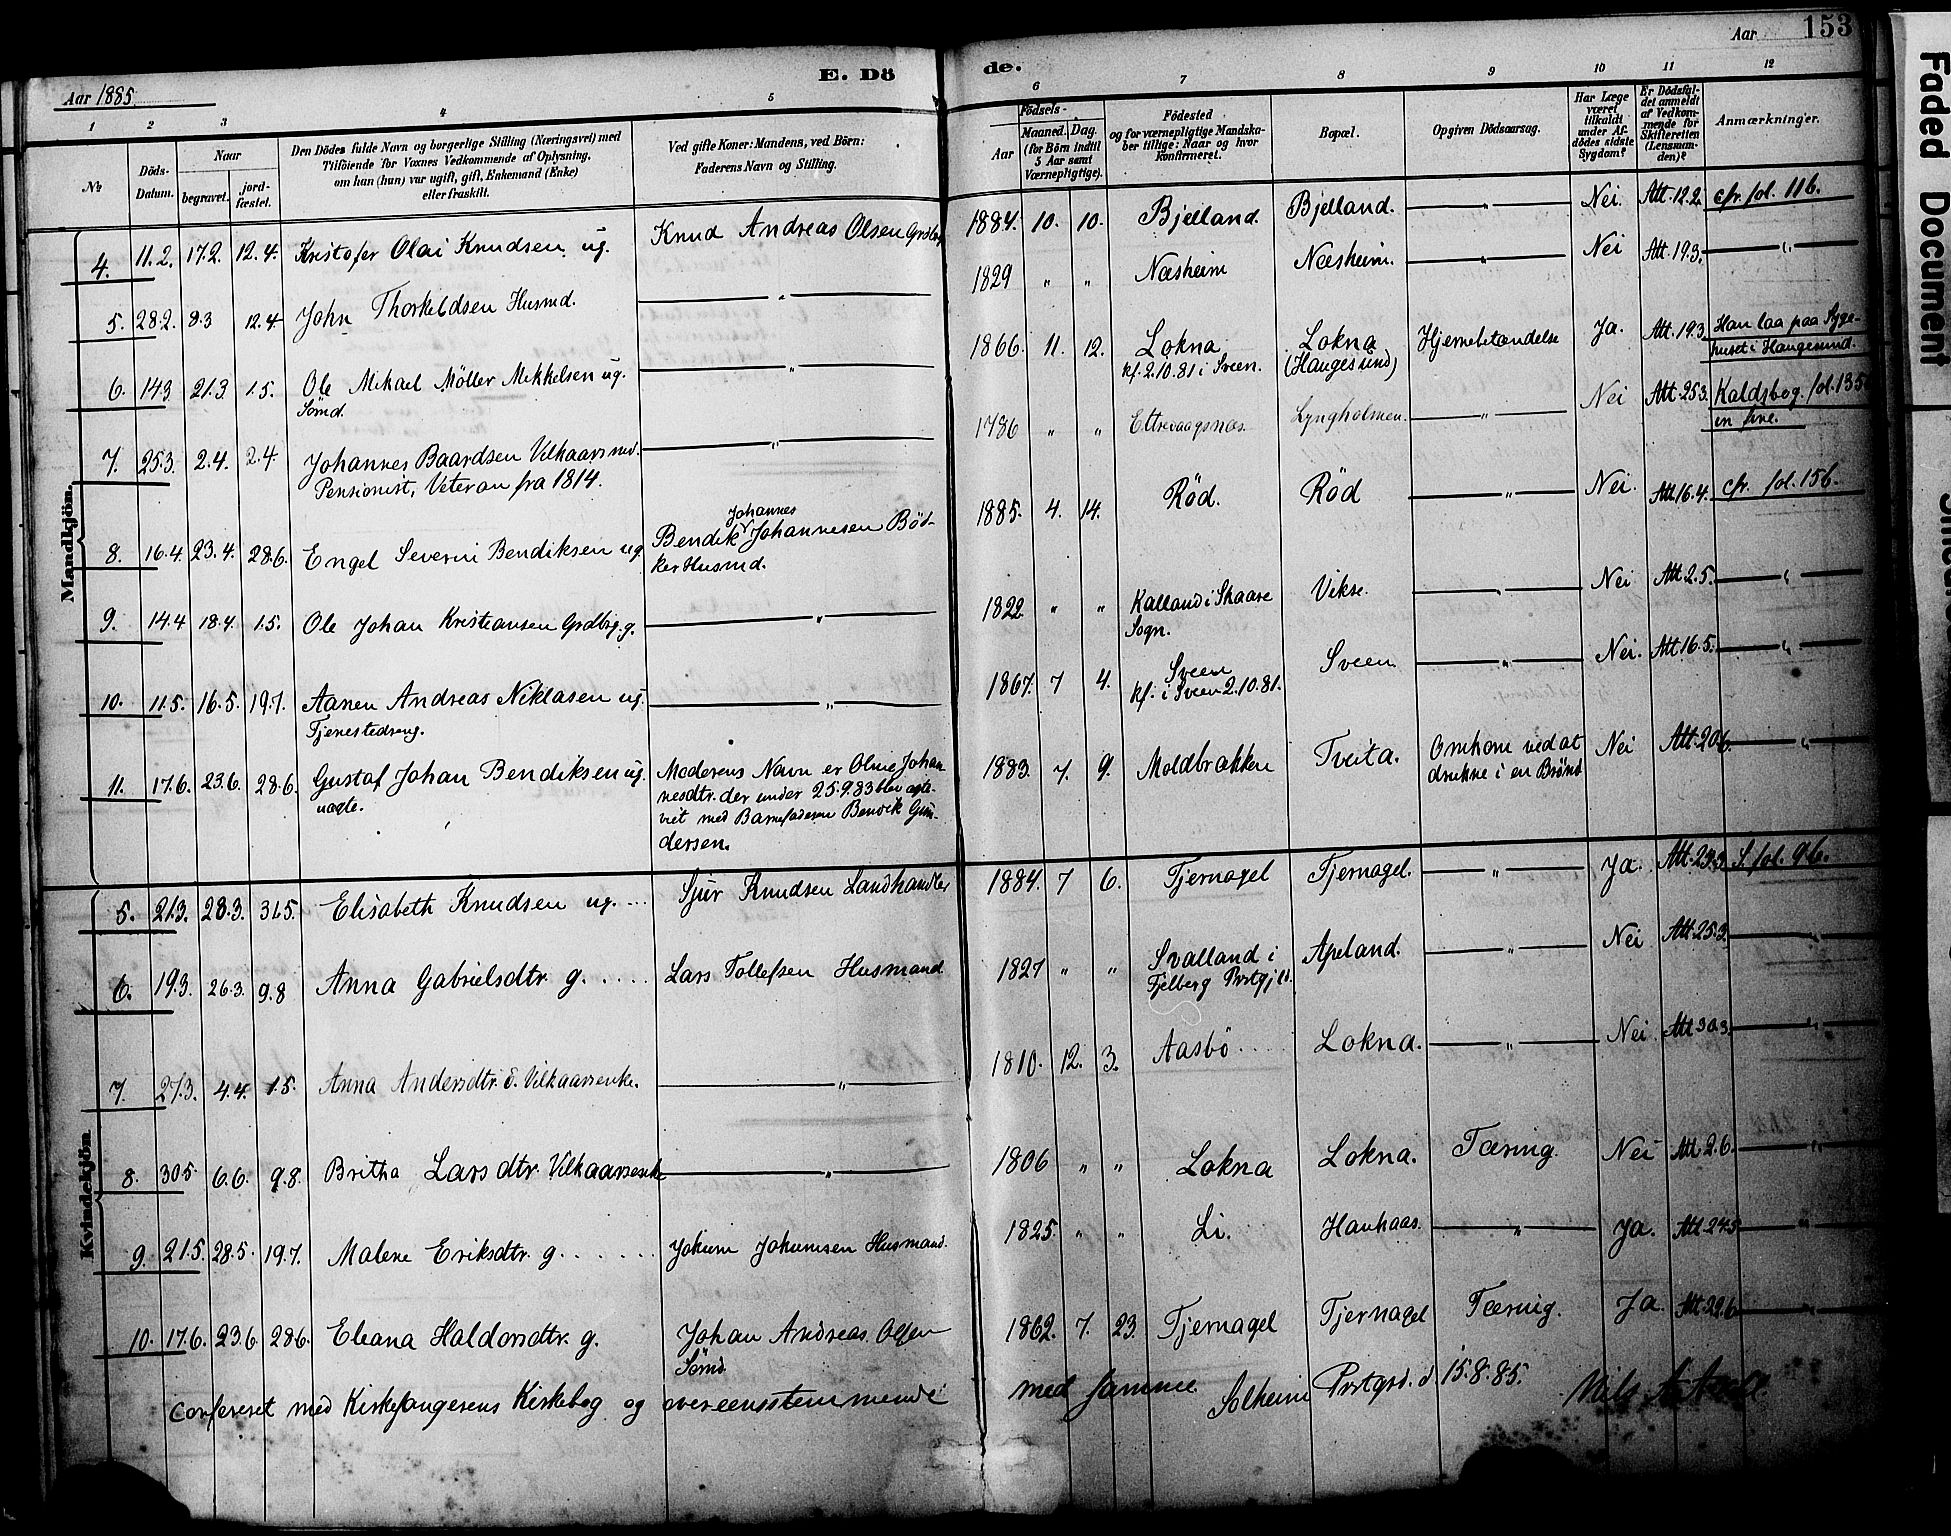 Aar 153
E. Dö de.
Aar 1885
1 2 3 4 5 6 7 8 9 10 11 12
№
Döds-
Datum.
Naar
begravet.
jord-
fæstet.
Den Dödes fulde Navn og borgerlige Stilling (Næringsvei) med
Tilföiende for Voxnes Vedkommende af Oplysning,
om han (hun) var ugift, gift, Enkemand (Enke)
eller fraskilt.
Ved gifte Koner: Mandens, ved Börn:
Faderens Navn og Stilling.
Födsels-
Aar
Maaned. Dag.
(for Börn indtil
5 Aar samt
Værnepligtige).
Födested
og for værnepligtige Mandska-
ber tillige: Naar og hvor
konfirmeret.
Bopæl.
Opgiven Dödsaarsag.
Har Læge
været
tilkaldt
under Af-
dödes sidste
Sygdom?
Er Dödsfal-
det anmeldt
af Vedkom-
mende for
Skifteretten
(Lensman-
den)?
Anmærkninger.
Mandkjön.
4. 11.2. 17.2. 12.4. Kristofer Olai Knudsen ug. Knud Andreas Olsen Grdbrg 1884. 10. 10. Bjelland. Bjelland. — " — Nei. Att. 12.2. cfr. fol. 116.
5. 28.2. 8.3 12.4 John Thorkeldsen Husmd. — " — 1829 " " Næsheim Næsheim. — " — Nei Att. 19.3. — " —
6. 14.3 21.3 1.5. Ole Mikael Möller Mikkelsen ug. — " — 1866. 11. 12. Lokna Lokna Hjernebetændelse Ja. Att. 19.3 Han laa paa Syge-
Sömd. kf. 2.10.81 i Sveen. (Haugesund) huset i Haugesund.
7. 25.3. 2.4. 2.4. Johannes Baardsen Vilkaarsmd. — " — 1786 " " Ettrevaagsnæs. Lyngholmen. — " — Nei Att. 25.3. Kaldsbog. fol. 135
Pensionist, Veteran fra 1814. in fine.
Johannes
8. 16.4. 23.4. 28.6. Engel Severin Bendiksen ug. Bendik Johannesen Bød- 1885. 4. 14. Rød. Rød — " — Nei. Att. 16.4. cfr. fol. 156.
ker Husmd.
9. 14.4 18.4. 1.5. Ole Johan Kristiansen Grdbrg. g. — " — 1822. " " Kalland i Skaare Vikse. — " — Nei Att. 2.5. — " —
Sogn.
10. 11.5. 16.5. 19.7. Aanen Andreas Niklasen ug. — " — 1867. 7 4. Sveen Sveen — " — Nei. Att 16.5. — " —
Tjenestedreng. kf. i Sveen 2.10.81.
11. 17.6. 23.6. 28.6. Gustaf Johan Bendiksen ug. Moderens Navn er Oline Johan- 1883. 7. 9. Moldbrækken Tveita. Omkom ved at Nei Att. 20.6. — " —
uægte. nesdtr. der under 25.9.83 blev ægte- drukne i en Brønd
viet med Barnefaderen Bendik Gun-
dersen.
Kvindekjön
5. 21.3. 28.3. 31.5. Elisabeth Knudsen ug. Sjur Knudsen Landhandler 1884. 7 6. Tjernagel Tjernagel. — " — Ja. S. fol. 96.
6. 19.3. 26.3. 9.8 Anna Gabrielsdtr. g. Lars Tollefsen Husmand 1827 " " Svalland i Apeland. — " — Nei Att. 25.3. — " —
Fjelberg Prstgjld.
7. 27.3. 4.4. 1.5. Anna Andersdtr. Vilkaarsenke. — " — 1810. 12. 3. Aasbö Lokna. — " — Nei. Att 30.3. — " —
8. 30.5 6.6. 9.8. Britha Larsdtr. Vilkaarsenke — " — 1806 " " Lokna Lokna. Tæring. Nei Att. 2.6. — " —
9. 21.5. 28.5. 19.7. Malene Eriksdtr. g. Jokum Jokumsen Husmand. 1825. " " Li. Haukaas. — " — Ja. Att. 24.5 — " —
10. 17.6. 23.6 28.6. Eleana Haldorsdtr. g. Johan Andreas Olsen 1862. 7. 23. Tjernagel Tjernagel Tæring. Ja. Att. 22.6. — " —
Sömd.
Confereret med Kirkesangerens Kirkebog og overeensstemmende med samme. Solheim Prstgrd. d. 15.8.85. Nils
Faded Document